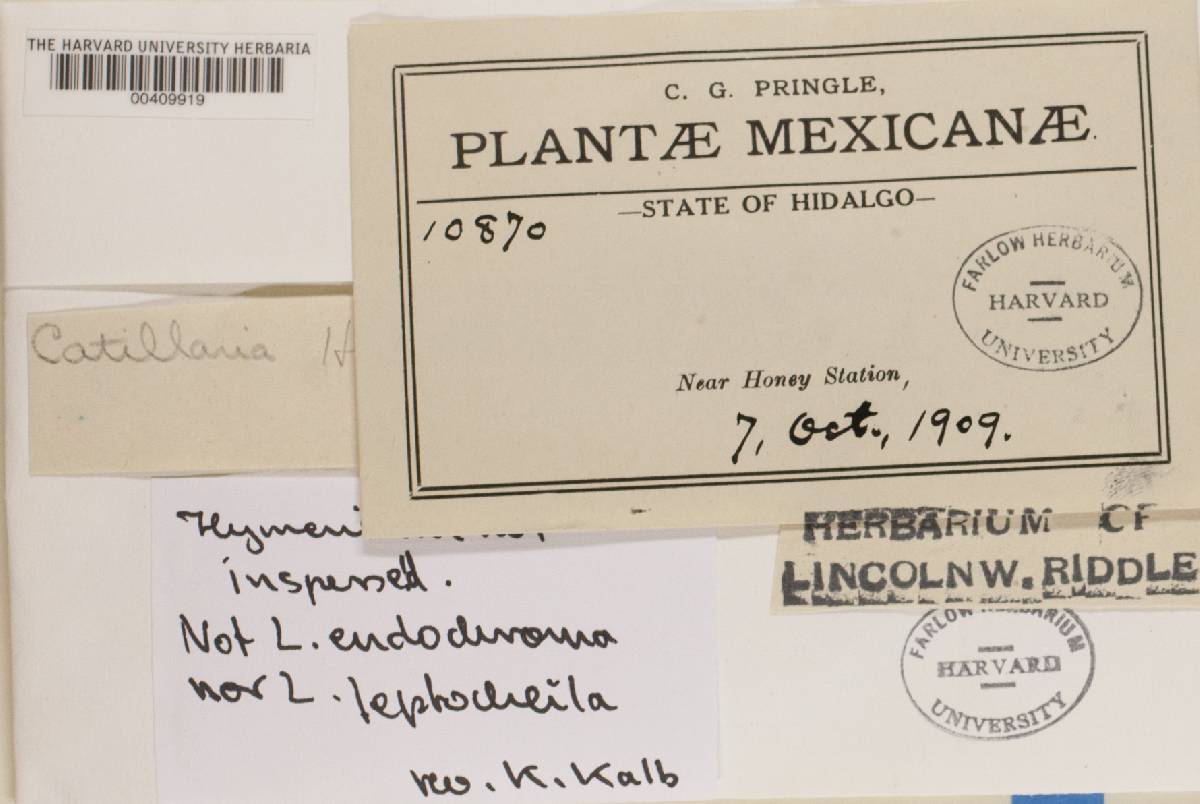 THE HARVARD UNIVERSITY HERBARIA
00409919
C. G. PRINGLE,
PLANTÆ MEXICANÆ.
—STATE OF HIDALGO—
10870
FARLOW HERBARIUM
HARVARD
UNIVERSITY
Near Honey Station,
7, Oct., 1909.
Catillaria
inspersed.
Not L. endochroma
nor L. leptocheila
rev. K. Kalb
HERBARIUM OF
LINCOLN W. RIDDLE
FARLOW HERBARIUM
HARVARD
UNIVERSITY